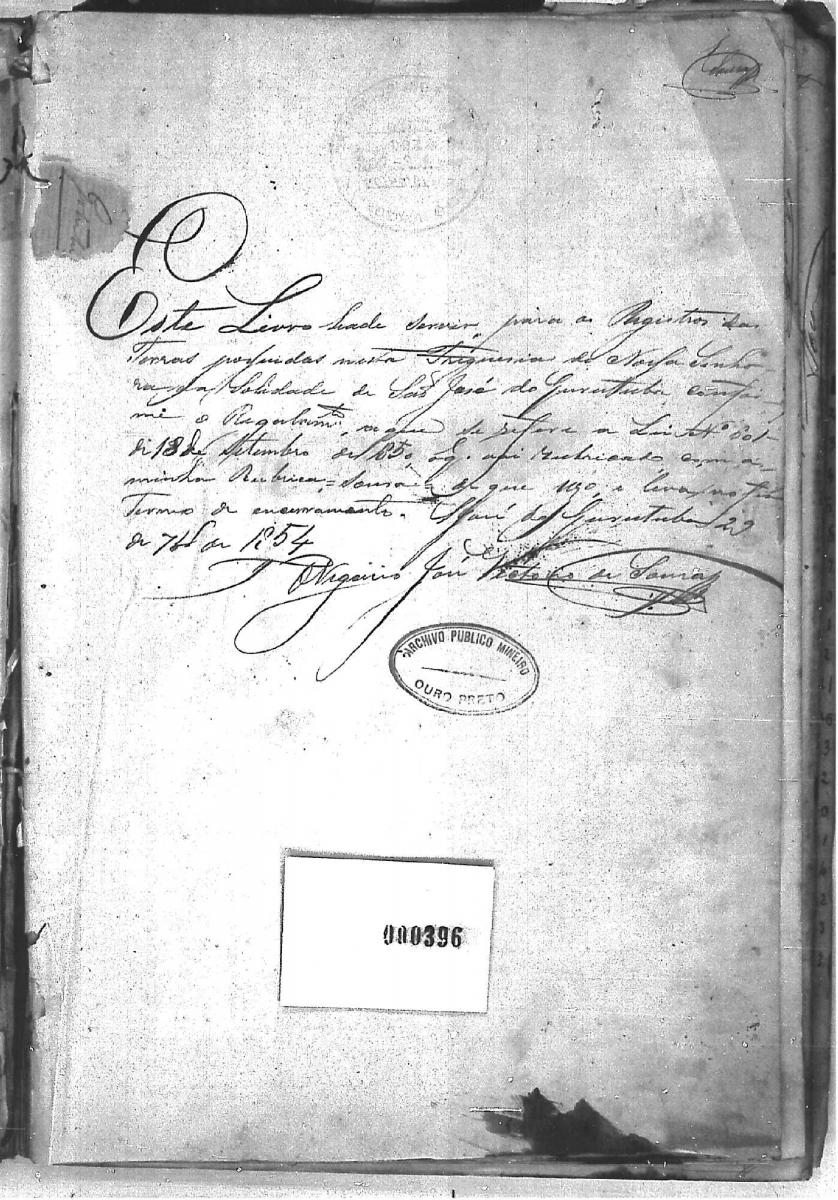 Souza
Este Livro hade servir para os Registros das
Terras possuidas nesta Freguesia de Nossa Senho-
ra da Soledade de São José do Gurutuba confor-
me o Regulamto, aque se refere a Lei Nº 601
de 18 de Setembro de 1850 vai rubricado com a
minha Rubrica = Souza = de que uzo, e leva no fim
Termo de encerramento. S. José do Gurutuba 22
de 7bro de 1854
O Vigario José Victorio de Souza
ARCHIVO PUBLICO MINEIRO
OURO PRETO
000396